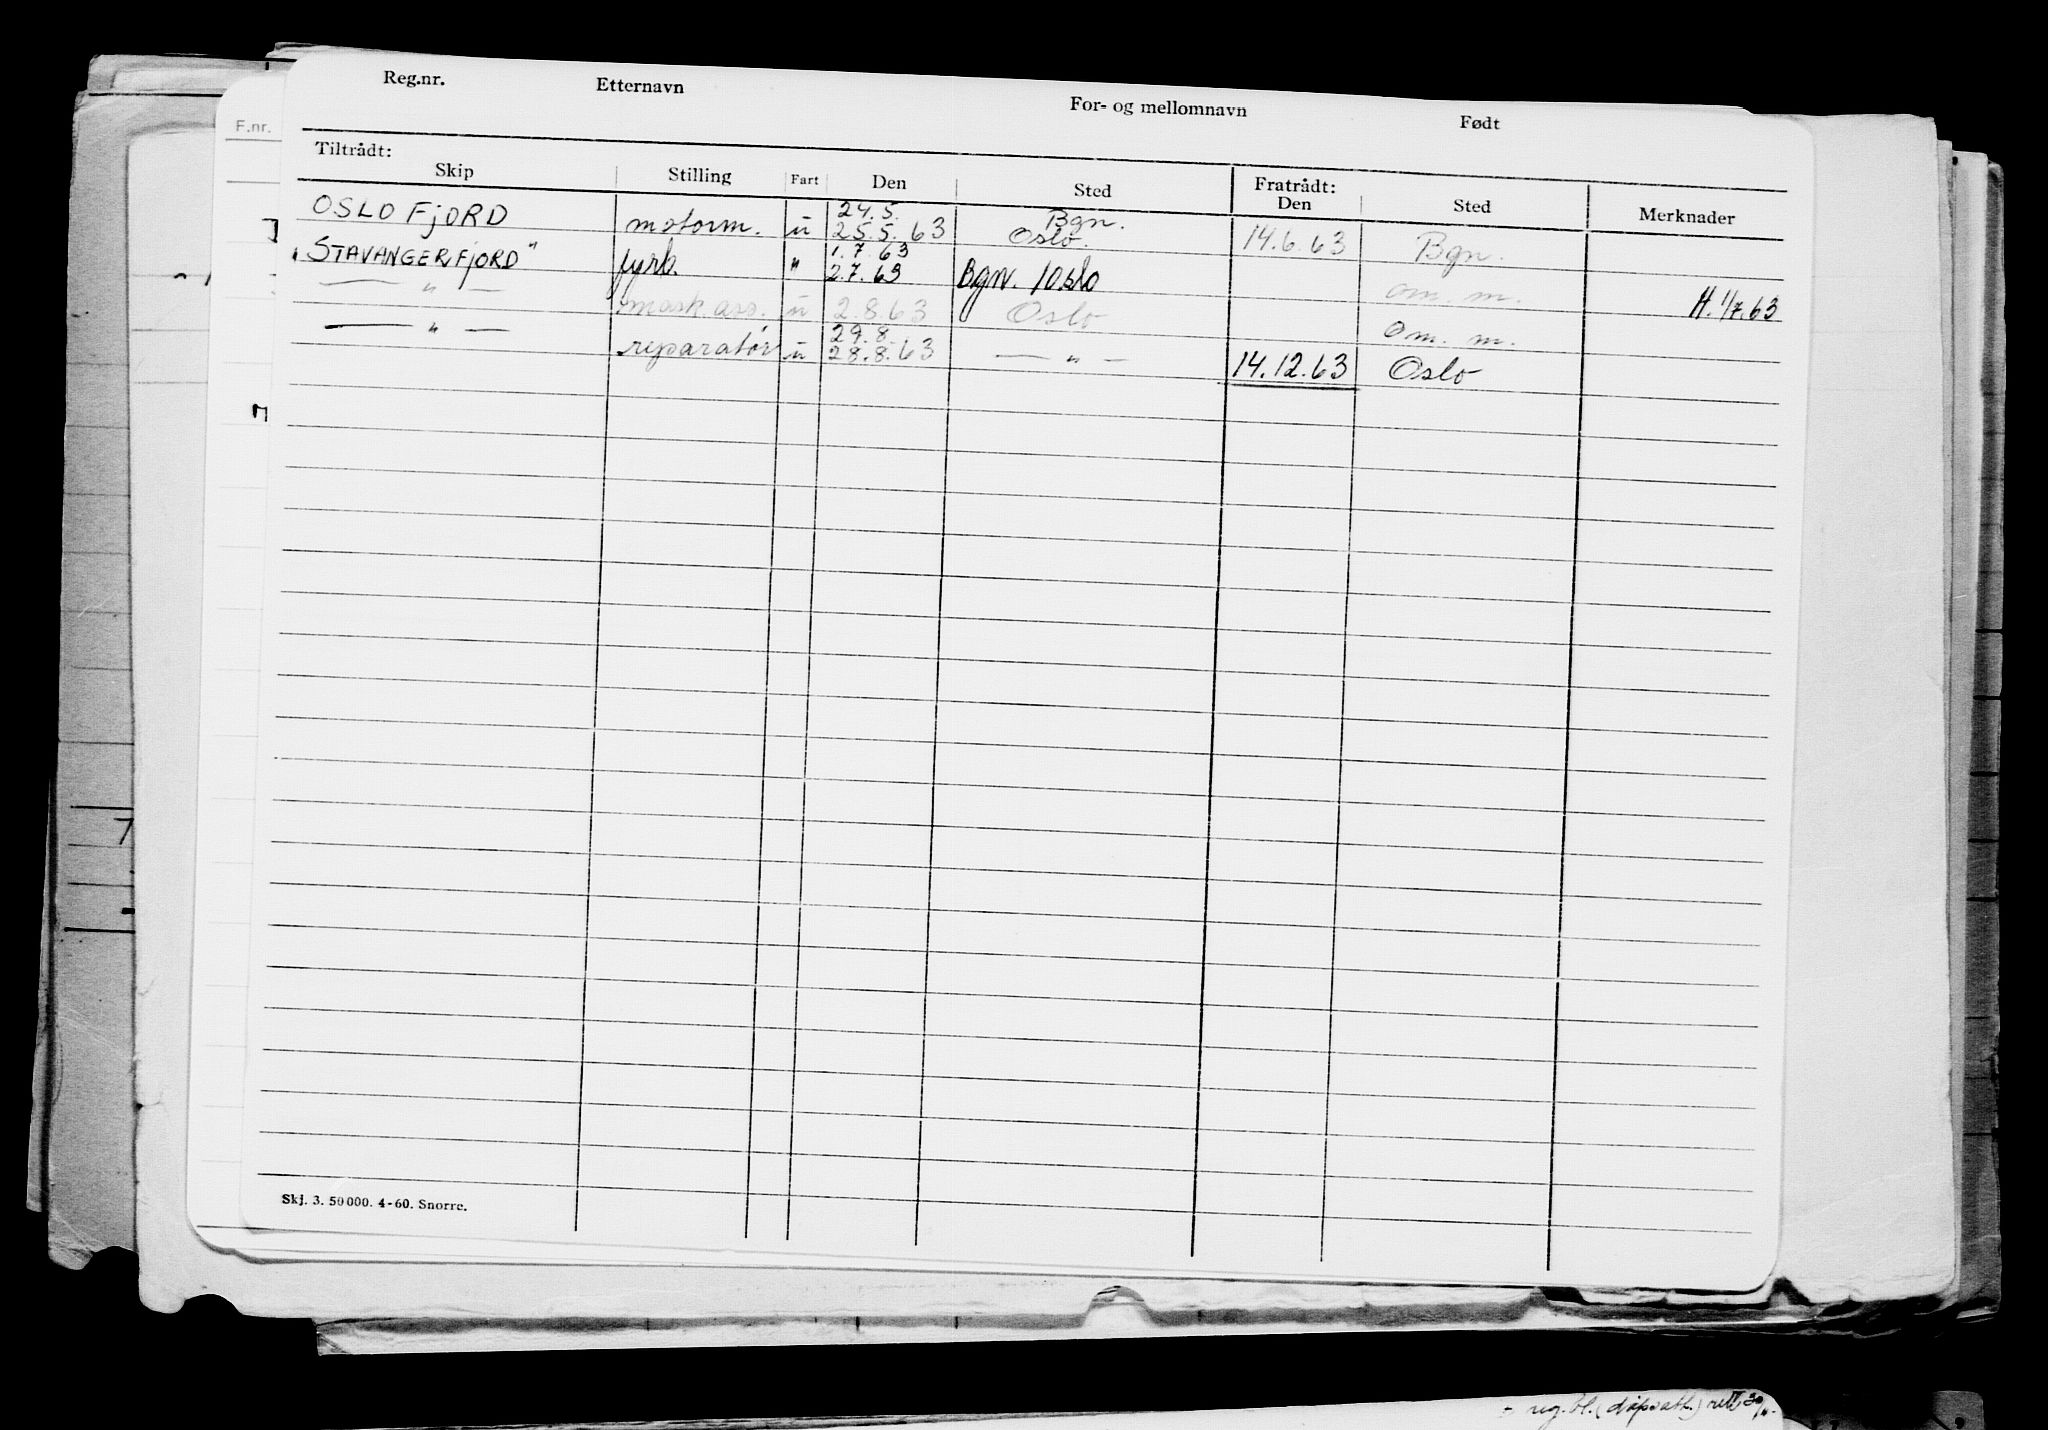 Reg.nr. Etternavn For- og mellomnavn Født
F.nr.
Tiltrådt: Fratrådt:
Skip Stilling Fart Den Sted Den Sted Merknader
24.5. Bgn.
OSLOFJORD motorm. u 25.5.63 Oslo. 14.6.63 Bgn.
1.7.63
"STAVANGERFJORD" fyrb. " 2.7.63 Bgn. / Oslo om. m. H. 1/7.63
— " — mask.ass. u 2.8.63 Oslo om. m.
29.8.
— " — reparatør u 28.8.63 — " — 14.12.63 Oslo
7
Skj. 3. 50000. 4-60. Snorre.
reg.bl. (dåpsatt.)